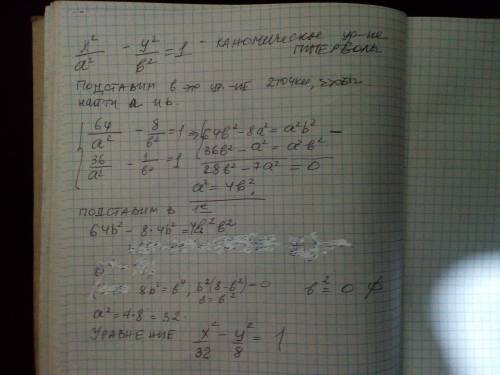 x²/a² - y²/b² = 1 - каноническое ур-ие гиперболы
Подставим в это ур-ие 2 точки, чтобы
найти a и b.
64/a² - 8/b² = 1 => 64b² - 8a² = a²b² -
36/a² - 1/b² = 1 36b² - a² = a²b²
28b² - 7a² = 0
a² = 4b²
Подставим в 1е
64b² - 8·4b² = 4b²b²
8b² = b⁴, b²(8-b²) = 0 b² = 0 ∅
8 = b²
a² = 4·8 = 32.
Уравнение x²/32 - y²/8 = 1